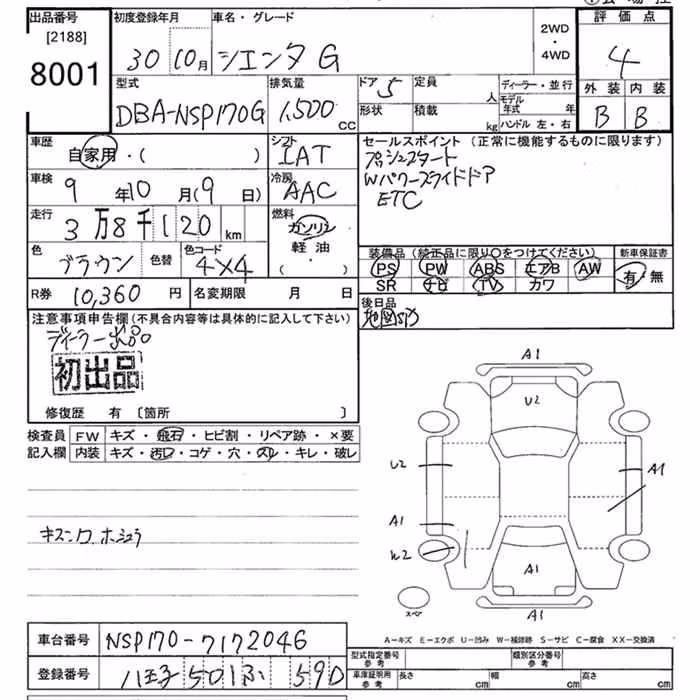 出品番号 初度登録年月 車名・グレード 2WD・4WD 評価点
[2188]
8001 30 10月 シエンタ G 4
型式 排気量 ドア 5 定員 人 ディーラー・並行 外装 内装
DBA-NSP170G 1,500 CC 形状 積載 kg モデル年式 年 ハンドル 左・右 B B
車歴 自家用・( ) シフト IAT セールスポイント (正常に機能するものに限ります)
プッシュスタート
車検 9年10月(9日) 冷房 AAC Wパワースライドドア
ETC
走行 3万8千120km 燃料 ガソリン
軽油・( )
色 ブラウン 色替 色コード 4X4 装備品 (純正品に限り○をつけてください) 新車保証書
PS PW ABS エアB AW 有・無
SR ナビ TV カワ
R券 10,360円 名変期限 月 日 後日品
注意事項申告欄(不具合内容等は具体的に記入して下さい) 地図SD
ディーラー出品
初出品
修復歴 有 [箇所 ]
検査員 FW キズ・飛石・ヒビ割・リペア跡・×要
記入欄 内装 キズ・汚レ・コゲ・穴・スレ・キレ・破レ
A1
U2
U2 A1
A1
W2
A1
スペア A1
A−キズ E−エクボ U−凹み W−補修跡 S−サビ C−腐食 XX−交換済
車台番号 NSP170-7172046
型式指定番号 参考 類別区分番号 参考
登録番号 八王子 501 590
車庫証明用 参考 長さ cm 幅 cm 高さ cm